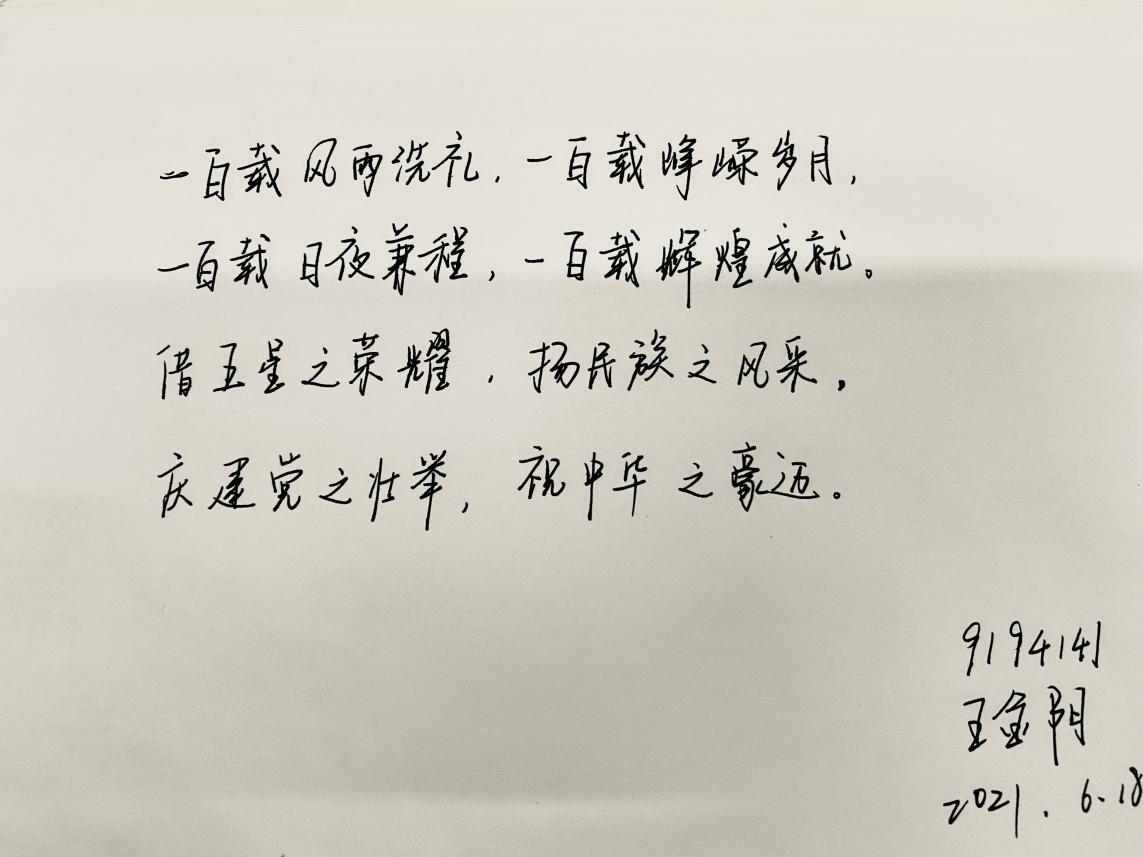 一百载风雨洗礼,一百载峥嵘岁月,
一百载日夜兼程,一百载辉煌成就。
借五星之荣耀,扬民族之风采。
庆建党之壮举,祝中华之豪迈。
9194141
王金阴
2021.6.18